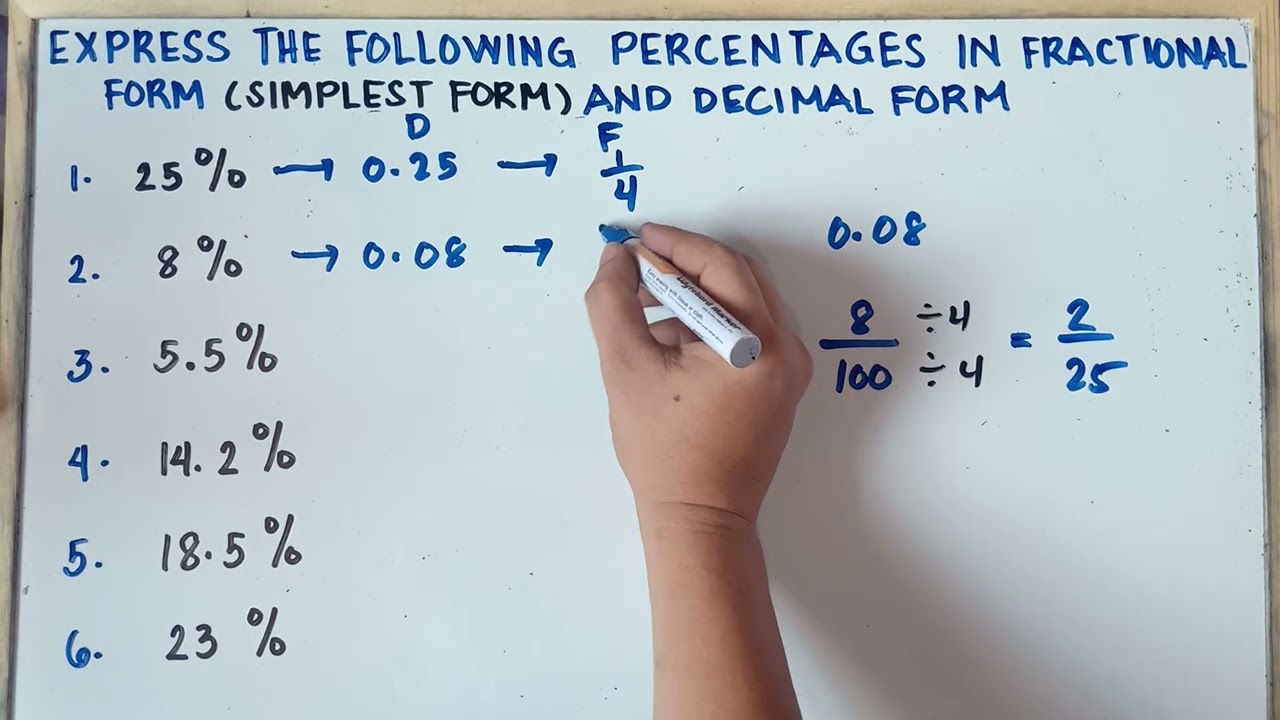 EXPRESS THE FOLLOWING PERCENTAGES IN FRACTIONAL
FORM (SIMPLEST FORM) AND DECIMAL FORM
D F
1. 25% → 0.25 → 1/4
2. 8% → 0.08 →
3. 5.5%
4. 14.2%
5. 18.5%
6. 23%
0.08
8/100 ÷4/÷4 = 2/25